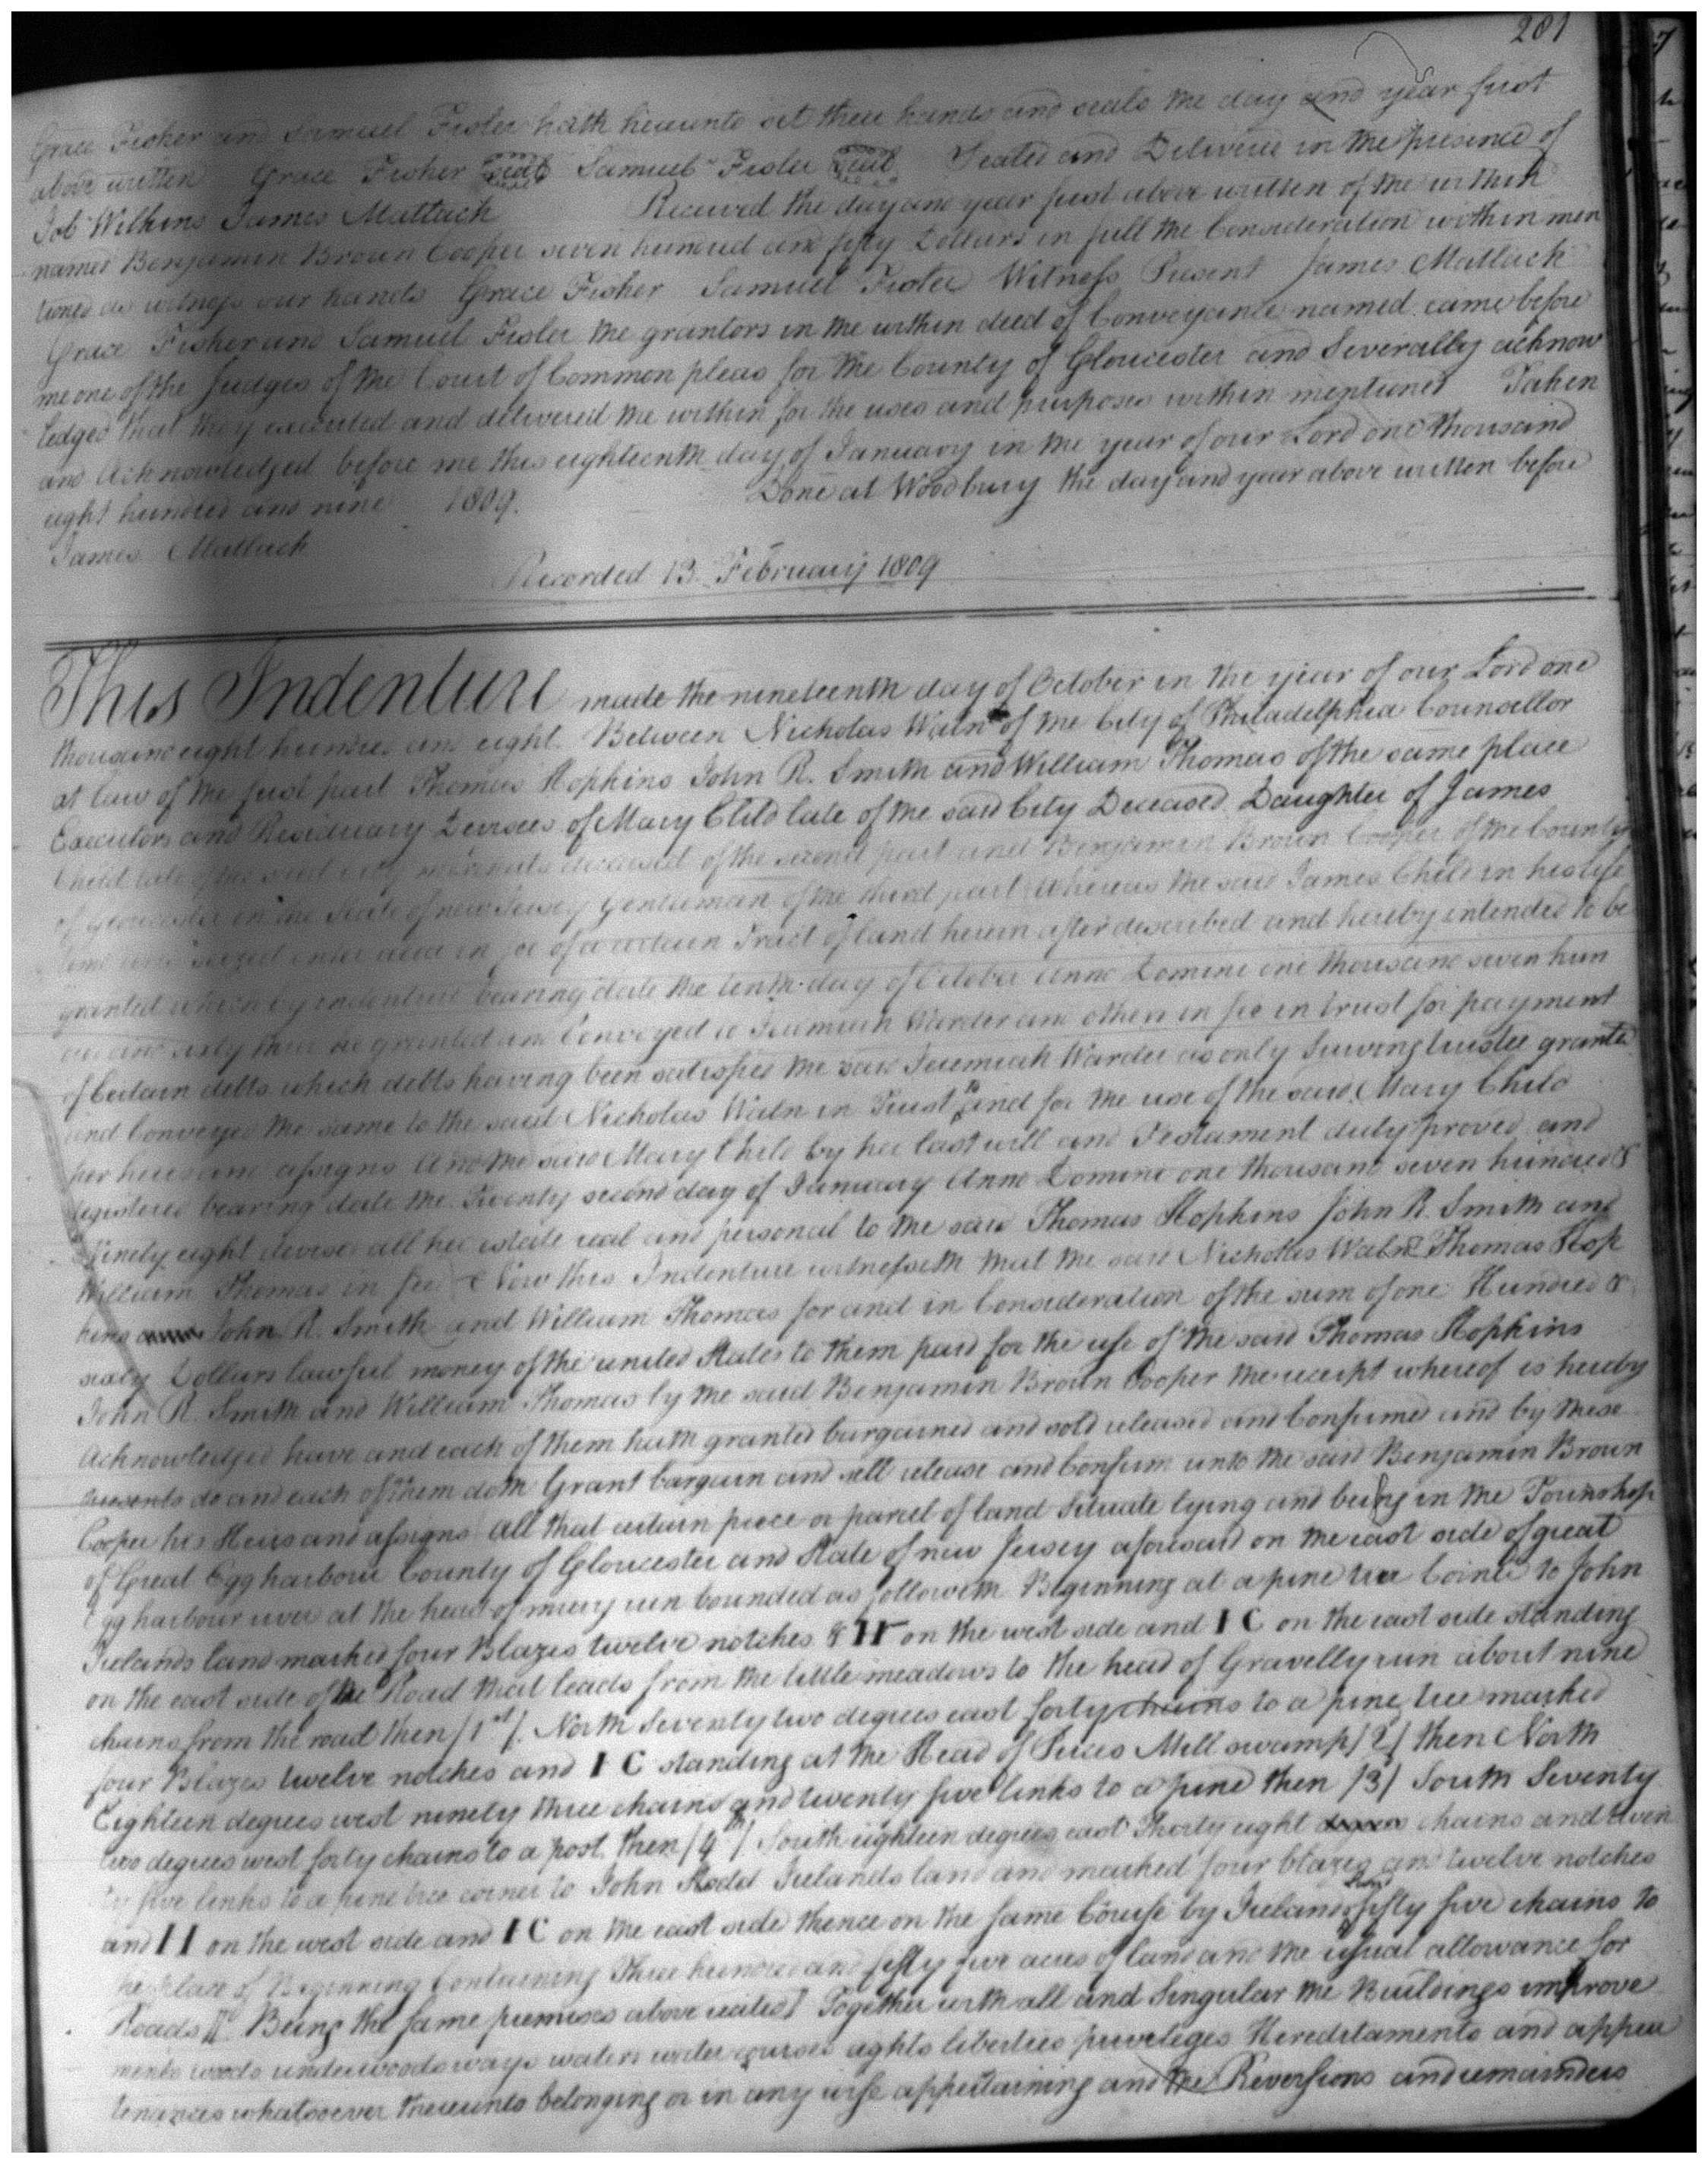 281
Grace Fisher and Samuel Fisler hath hereunto set their hands and seals the day and year first
above written Grace Fisher Seal Samuel Fisler Seal Sealed and Delivered in the presence of
Job Wilkins James Matlack Received the day and year first above written of the within
named Benjamin Brown Cooper seven hundred and fifty Dollars in full the Consideration within men
tioned as witness our hands Grace Fisher Samuel Fisler Witness Present James Matlack
Grace Fisher and Samuel Fisler the grantors in the within deed of Conveyance named came before
me one of the Judges of the Court of Common pleas for the County of Gloucester and Severally acknow
ledged that they executed and delivered the within for the uses and purposes within mentioned Taken
and Acknowledged before me this eighteenth day of January in the year of our Lord one thousand
eight hundred and nine 1809. Done at Woodbury the day and year above written before
James Matlack
Recorded 13 February 1809
This Indenture made the nineteenth day of October in the year of our Lord one
thousand eight hundred and eight. Between Nicholas Waln of the City of Philadelphia Councellor
at law of the first part Thomas Hopkins John R. Smith and William Thomas of the same place
Executors and Residuary Devisees of Mary Child late of the said City Deceased Daughter of James
Child late of the said city deceased of the second part and Benjamin Brown Cooper of the County
of Gloucester in the State of new Jersey gentleman of the third part Whereas the said James Child in his life
time was seized in fee of a certain Tract of land herein after described and hereby intended to be
granted which by indenture bearing date the tenth day of October Anno Domini one thousand seven hun
dred and sixty three he granted and Conveyed to Jeremiah Warder and others in fee in trust for payment
of Certain debts which debts having been satisfied the said Jeremiah Warder as only Surviving trustee granted
and Conveyed the same to the said Nicholas Waln in Trust to and for the use of the said Mary Child
her heirs and assigns And the said Mary Child by her last will and Testament duly proved and
registered bearing date the Twenty second day of January Anno Domini one thousand seven hundred &
Ninety eight devised all her estate real and personal to the said Thomas Hopkins John R. Smith and
William Thomas in fee Now this Indenture witnesseth that the said Nicholas Waln Thomas Hop
kins John R. Smith and William Thomas for and in Consideration of the sum of one Hundred &
sixty Dollars lawful money of the united States to them paid for the use of the said Thomas Hopkins
John R. Smith and William Thomas by the said Benjamin Brown Cooper the receipt whereof is hereby
Acknowledged have and each of them hath granted bargained and sold released and Confirmed and by these
presents do and each of them doth Grant bargain and sell release and Confirm unto the said Benjamin Brown
Cooper his Heirs and assigns all that certain piece or parcel of land Situate lying and being in the Township
of Great Egg harbour County of Gloucester and State of new Jersey aforesaid on the east side of great
Egg harbour river at the head of miery run bounded as followeth Beginning at a pine tree Corner to John
Irelands land marked four Blazes twelve notches & II on the west side and I C on the east side standing
on the east side of the Road that leads from the little meadows to the head of Gravelly run about nine
chains from the road then /1st/. North Seventy two degrees east forty chains to a pine tree marked
four Blazes twelve notches and I C standing at the Head of Mill swamp /2/ then North
Eighteen degrees west ninety three chains and twenty five links to a pine then /3/ South Seventy
two degrees west forty chains to a post then /4th/ South eighteen degrees east Thirty eight chains and twen
ty five links to a pine tree corner to John Irelands land and marked four blazes and twelve notches
and II on the west side and I C on the east side thence on the same Course by Irelands land fifty five chains to
the place of Beginning Containing Three hundred and fifty five acres of land and the usual allowance for
Roads Being the same premises above recited Together with all and Singular the Buildings improve
ments woods underwoods ways waters water courses rights liberties priveleges Hereditaments and appur
tenances whatsoever thereunto belonging or in any wise appertaining and the Reversions and remainders